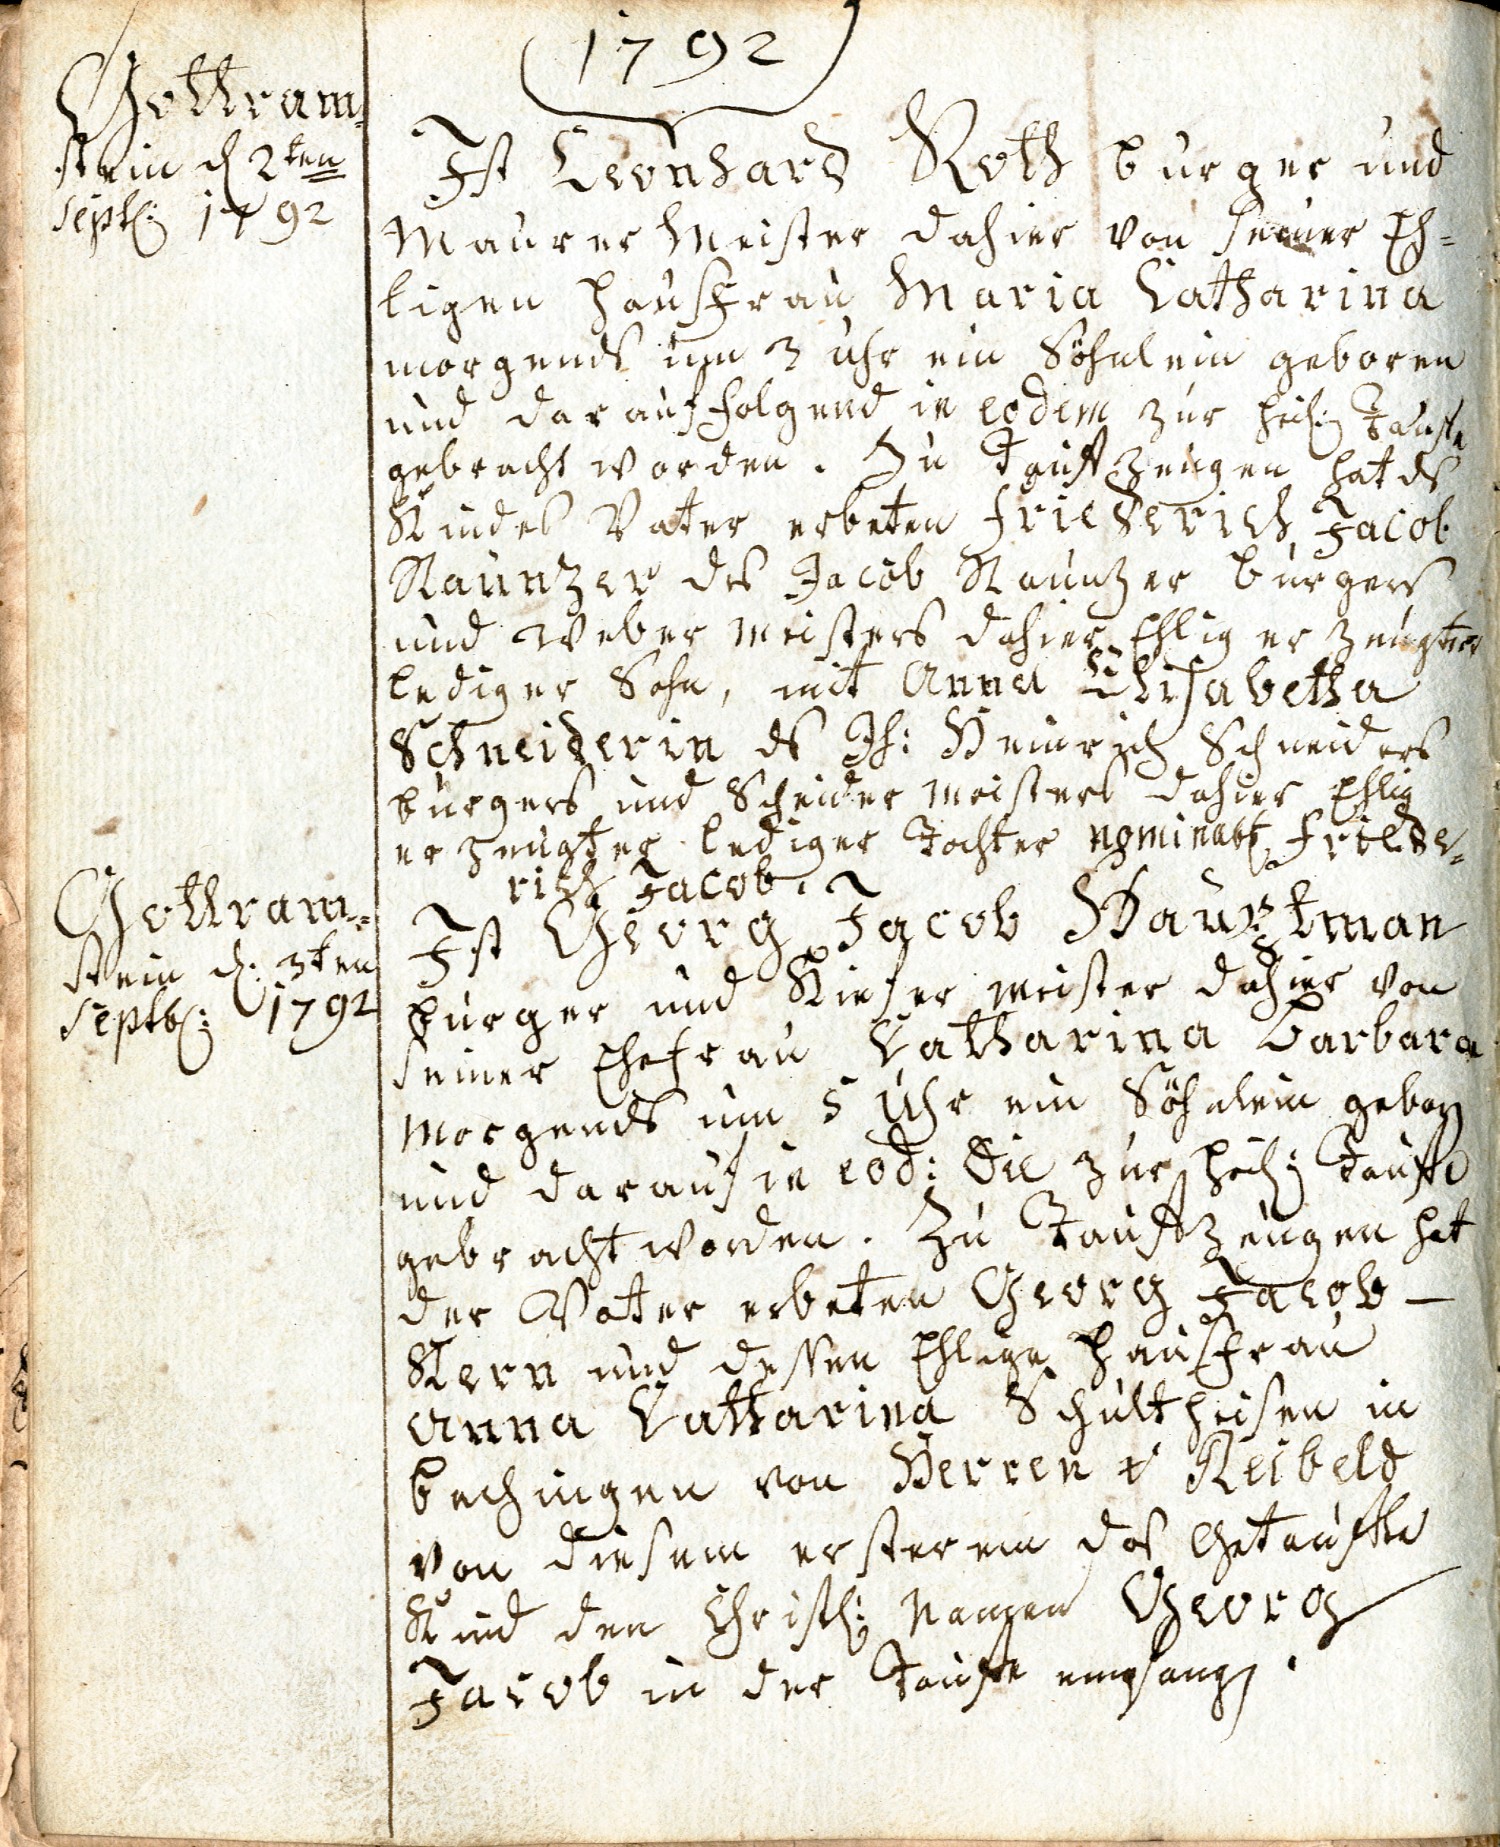 1792
Gottram-
stein d 2ten
Septb: 1792
Ist Leonhard Roth burger und
Maurer Meister dahier von seiner Eh-
ligen Hausfrau Maria Catharina
morgends um 3 uhr ein Söhnlein geboren
und darauf folgend in eodem zur heil: Tauffe
gebracht worden. Zu Taufzeugen hat ds
Kindes Vater erbeten Friederich Jacob
Kauntzer des Jacob Kauntzer burgers
und Weber Meisters dahier Ehlig erzeugter
lediger Sohn, mit Anna Elisabetha
Schneiderin ds Jh: Heinrich Schneiders
burgers und Schneider Meisters dahier Ehlig
erzeugter lediger Tochter nominatg Friede-
rich Jacob.
Gottram-
stein d. 3ten
Septb: 1792
Ist Georg Jacob Hauptman
burger und Kiefer Meister dahier von
seiner Ehefrau Catharina Barbara
Morgends um 5 Uhr ein Söhnlein geborn
und darauf in eod: die zur heil: Tauffe
gebracht worden. Zu Taufzeugen hat
der Vatter erbeten Georg Jacob
Kern und dessen Ehlige Hausfrau
Anna Catharina Schultheisen in
bechingen von Herren v Reibeld
von diesem ersterem das Getauffte
Kind den Christl: Namen Georg
Jacob in der Tauffe empfangen.